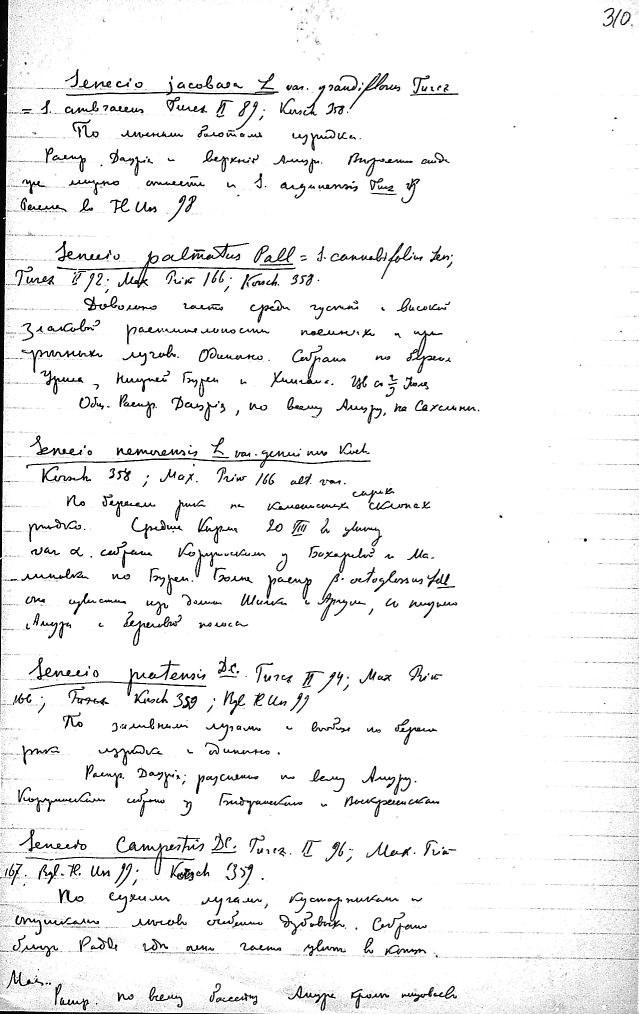 310.
Senecio jacobaea L var. grandiflorus Turcz
= S. ambraceus Turcz II 89; Korsch 358.
По лесным болотам изредка.
Распр. Даурія и верхній Амур.
и S. argunensis Turcz
во Fl. Uss 98
Senecio palmatus Pall = S. cannabifolius Less;
Turcz II 92; Max Prim 166; Korsch. 358.
Довольно часто среди густой и высокой
злаковой растительности поемных и при-
лугов. Одиноко. Собрано по берегам
Урила, Нижней Буреи и Хингана. Цв
Общ. Распр. Даурія, по всему Амуру, на Сахалине.
Senecio nemorensis L var. genuinus Koch
Korsch 358; Max. Prim 166 alt var.
По берегам рек на каменистых склонах
редко. Средний 20 VIII
var α. собрана Коржинским у Бохаревой и Ма-
линовки по Бурее. Более распр β. octoglossus Ldb
она известна из долин Шилки и Аргуни, со
Амура и береговой полосы
Senecio pratensis DC. Turcz II 94; Max Prim
166; Korsch 359; Rgl Fl. Uss 99
По заливным лугам и вообще по берегам
рек изредка и одиночно.
Распр. Даурія; рассеянно по всему Амуру.
Коржинским собрано у и Воскресенскаго
Senecio Campestris DC. Turcz. II 96; Max. Prim
167. Rgl. Fl. Uss 99; Korsch 359.
По сухим лугам, кустарникам и
опушкам лесов особенно дубовых. Собрано
близ Радде где очень часто цветет в конце
Мая..
Распр. по всему бассейну Амура кроме низовьев